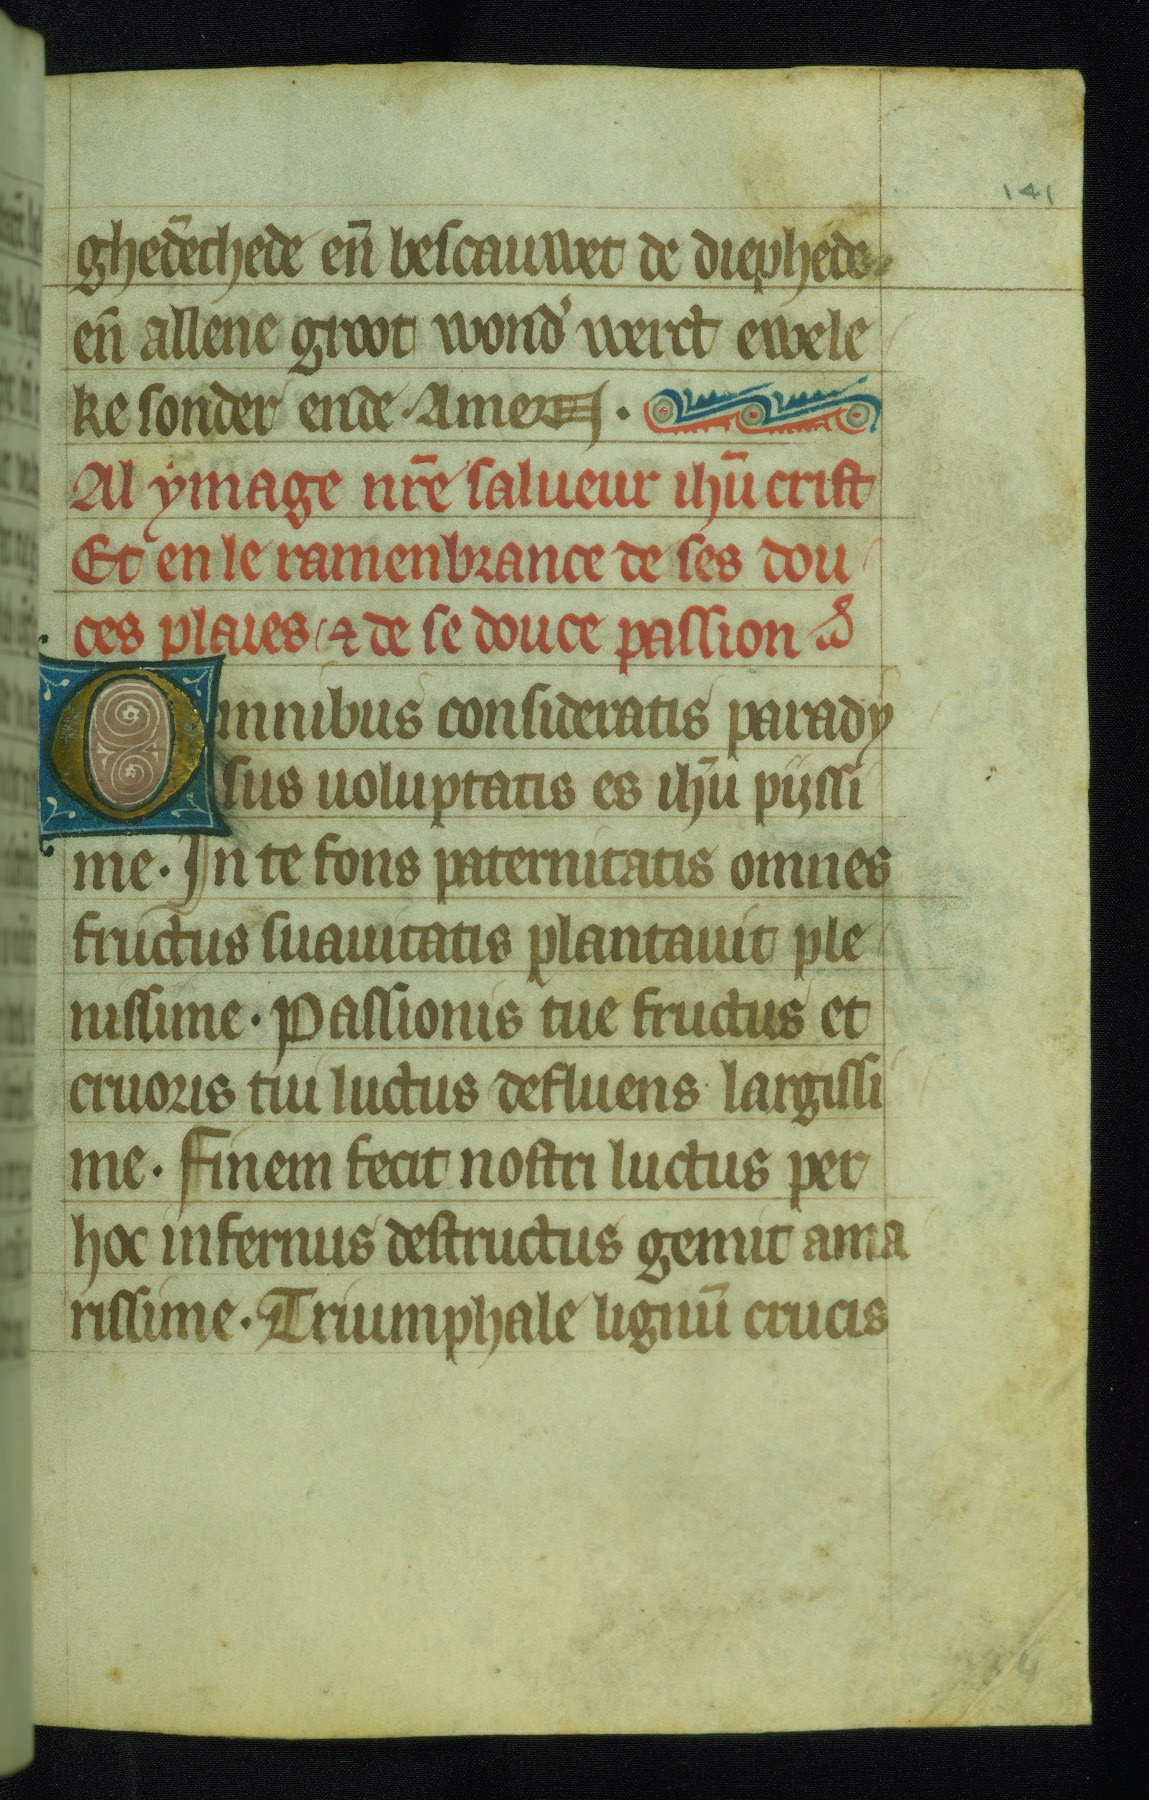 141
ghedēchede en̄ bescauwet de diephede
en̄ allene groot wond' werct ewele
ke sonder ende. Amen.
Al ymage nr̄e salueur ihū crist
Et en le ramenbrance de ses dou
ces plaies ⁊ de se douce passion
Omnibus consideratis parady
sus uoluptatis es ihū pijssi
me. In te fons paternitatis omnes
fructus suauitatis plantauit ple
nissime. Passionis tue fructus et
cruoris tui luctus defluens largissi
me. Finem fecit nostri luctus per
hoc infernus destructus gemit ama
rissime. Triumphale lignū crucis